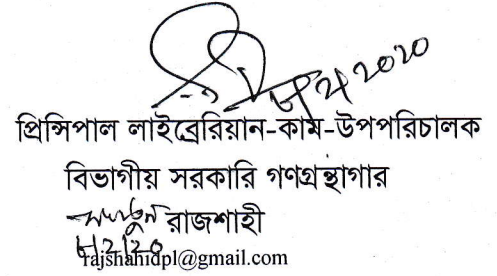 প্রিন্সিপাল লাইব্রেরিয়ান-কাম-উপপরিচালক
বিভাগীয় সরকারি গণগ্রন্থাগার
রাজশাহী
rajshahidpl@gmail.com